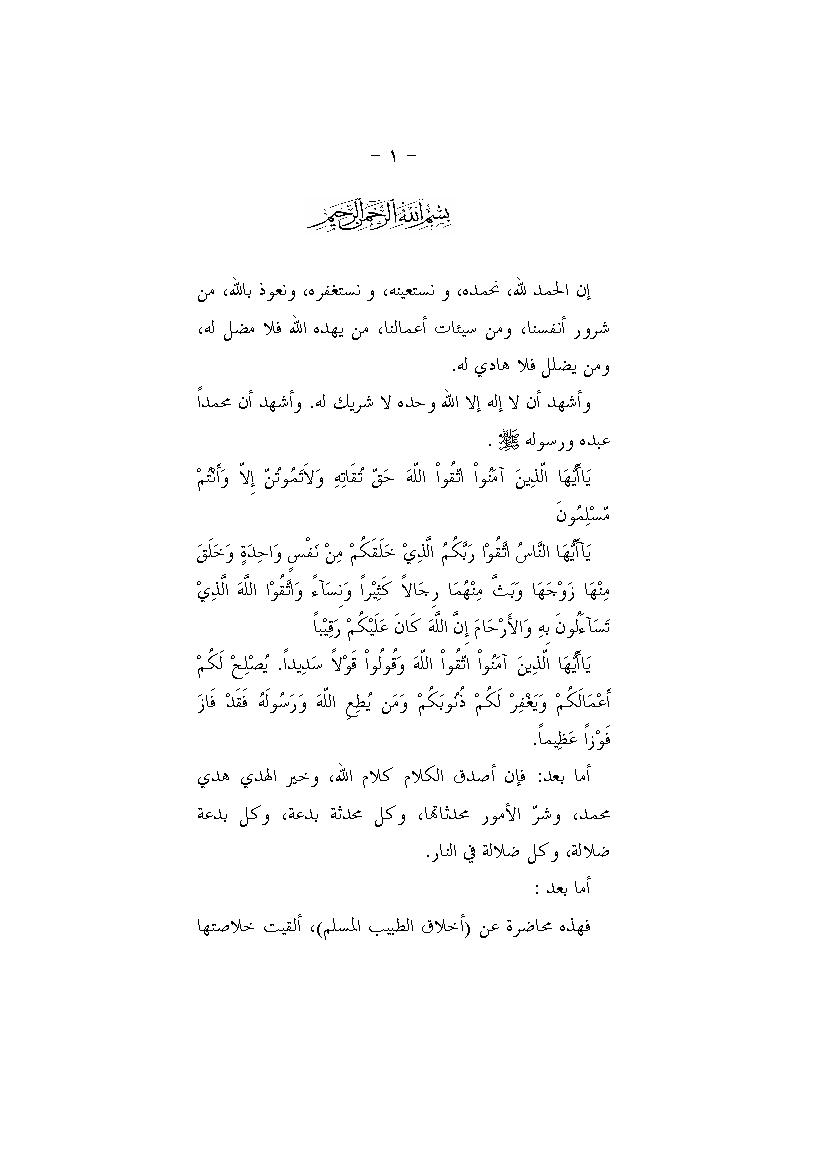 - ١ -
بسم الله الرحمن الرحيم
إن الحمد لله، نحمده، و نستعينه، و نستغفره، ونعوذ بالله، من
شرور أنفسنا، ومن سيئات أعمالنا، من يهده الله فلا مضل له،
ومن يضلل فلا هادي له.
وأشهد أن لا إله إلا الله وحده لا شريك له. وأشهد أن محمداً
عبده ورسوله ﷺ .
يَاأَيُّهَا الَّذِينَ آمَنُواْ اتَّقُواْ اللَّهَ حَقَّ تُقَاتِهِ وَلاَتَمُوتُنَّ إِلاَّ وَأَنْتُمْ
مّسْلِمُونَ
يَاَأَيُّهَا النَّاسُ اتَّقُوْا رَبَّكُمُ الَّذِيْ خَلَقَكُمْ مِنْ نَفْسٍ وَاحِدَةٍ وَخَلَقَ
مِنْهَا زَوْجَهَا وَبَثَّ مِنْهُمَا رِجَالاً كَثِيْراً وَنِسَآءً وَاتَّقُوْا اللَّهَ الَّذِيْ
تَسَآءَلُونَ بِهِ وَالأَرْحَامَ إِنَّ اللَّهَ كَانَ عَلَيْكُمْ رَقِيْباً
يَاأَيُّهَا الَّذِينَ آمَنُواْ اتَّقُواْ اللَّهَ وَقُولُواْ قَوْلاً سَدِيداً. يُصْلِحْ لَكُمْ
أَعْمَالَكُمْ وَيَغْفِرْ لَكُمْ ذُنُوبَكُمْ وَمَن يُطِعِ اللَّهَ وَرَسُولَهُ فَقَدْ فَازَ
فَوْزاً عَظِيماً.
أما بعد: فإن أصدق الكلام كلام الله، وخير الهدي هدي
محمد، وشرّ الأمور محدثاتها، وكل محدثة بدعة، وكل بدعة
ضلالة، وكل ضلالة في النار.
أما بعد :
فهذه محاضرة عن (أخلاق الطبيب المسلم)، ألقيت خلاصتها